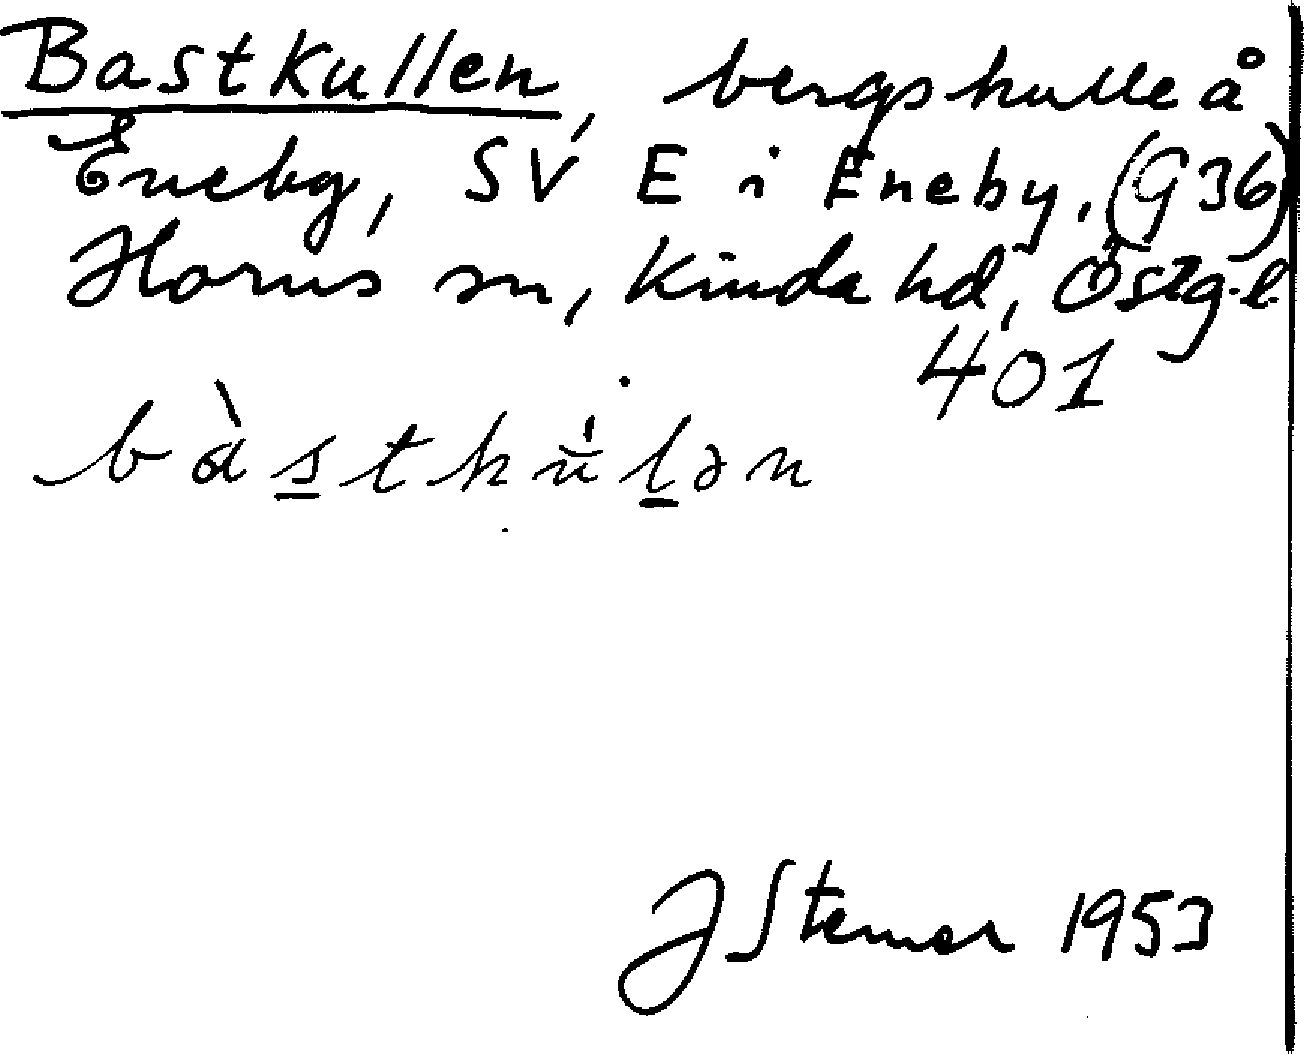 Bastkullen, bergskulle å
Eneby, SV E i Eneby. (G36)
Horns sn, Kinda hd, Östg.l.
401
bàstku̇lən
J Stemor 1953